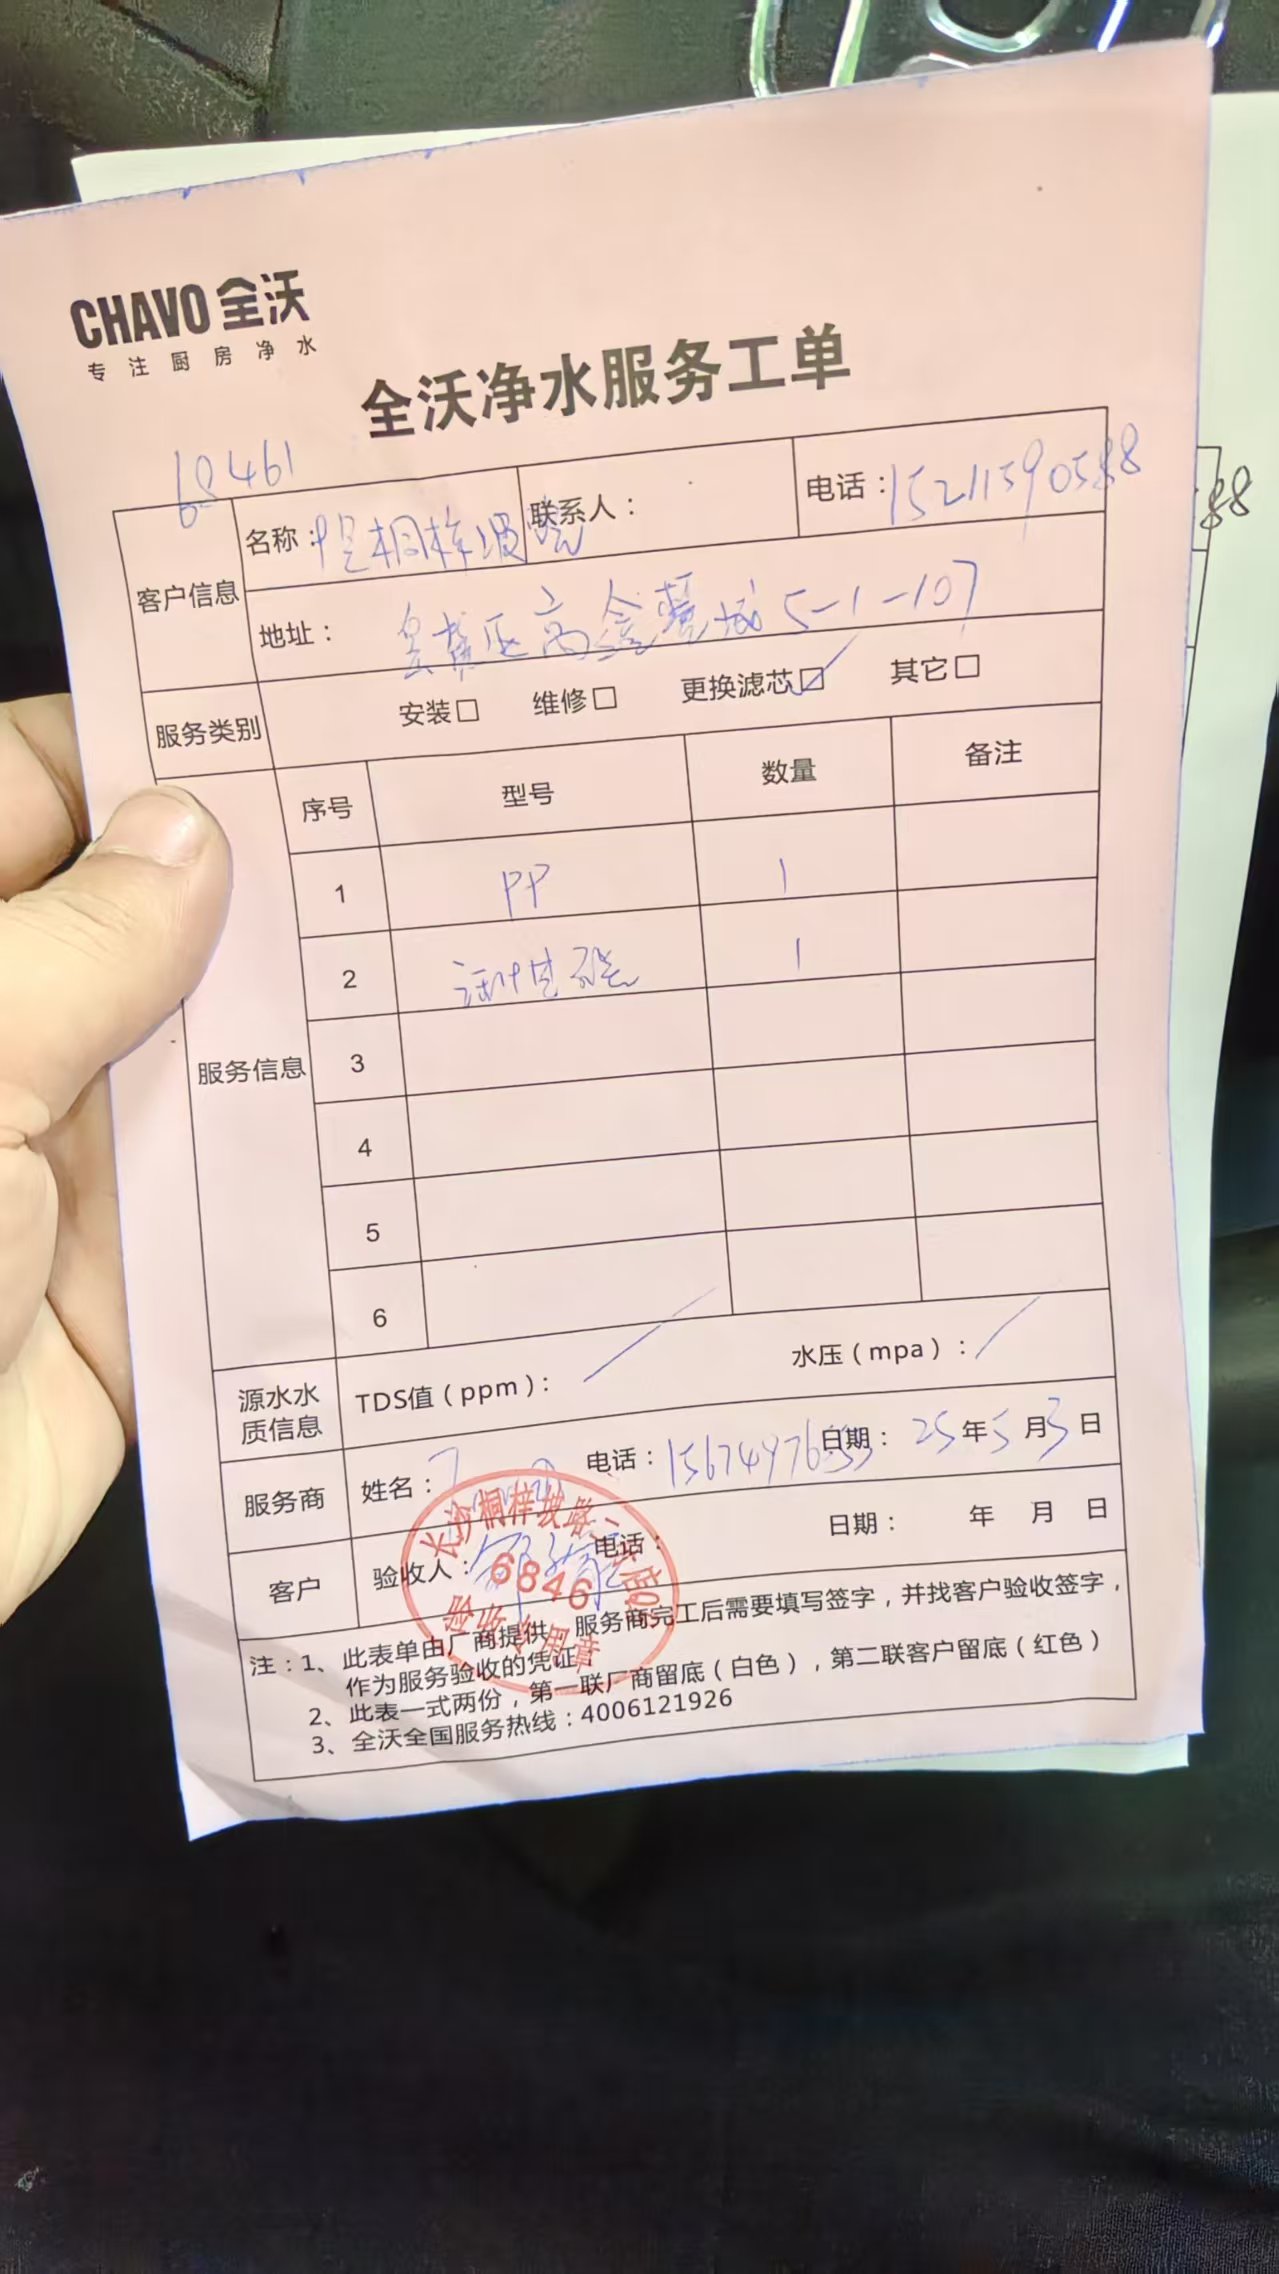 CHAVO 全沃
专注厨房净水
全沃净水服务工单
68461
客户信息
名称： 桐梓坡
联系人：
电话：15211590588
地址： 区高鑫麓城5-1-107
服务类别
安装□ 维修□ 更换滤芯☑ 其它□
服务信息
序号 型号 数量 备注
1 PP 1
2 1
3
4
5
6
源水水质信息
TDS值（ppm）： /
水压（mpa）： /
服务商
姓名：
电话：
日期： 25年5月3日
客户
验收人：
电话：
日期： 年 月 日
长沙桐梓坡路二店
68461
验收专用章
注：1、此表单由厂商提供，服务商完工后需要填写签字，并找客户验收签字，
作为服务验收的凭证；
2、此表一式两份，第一联厂商留底（白色），第二联客户留底（红色）
3、全沃全国服务热线：4006121926
88